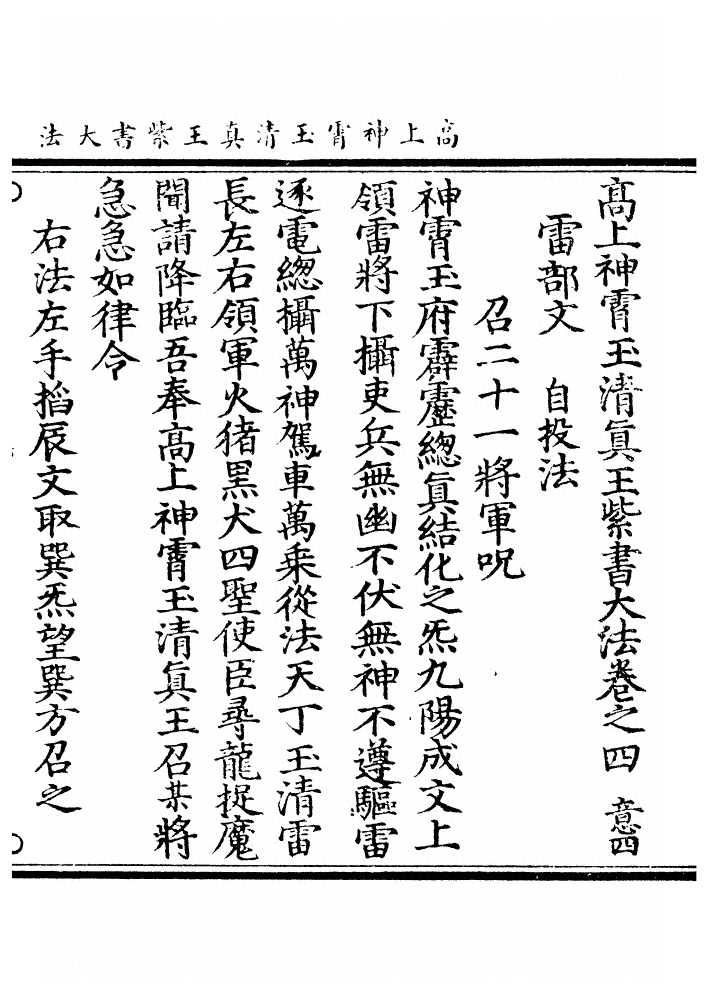 高上神霄玉清真王紫書大法
高上神霄玉清眞王紫書大法卷之四　意四
雷部文　自投法
召二十一將軍呪
神霄玉府霹靂總眞結化之炁九陽成文上
領雷將下攝吏兵無幽不伏無神不遵驅雷
逐電總攝萬神駕車萬乗從法天丁玉清雷
長左右領軍火猪黑犬四聖使臣尋龍捉魔
聞請降臨吾奉高上神霄玉清眞王召某將
急急如律令
右法左手搯辰文取巽炁望巽方召之